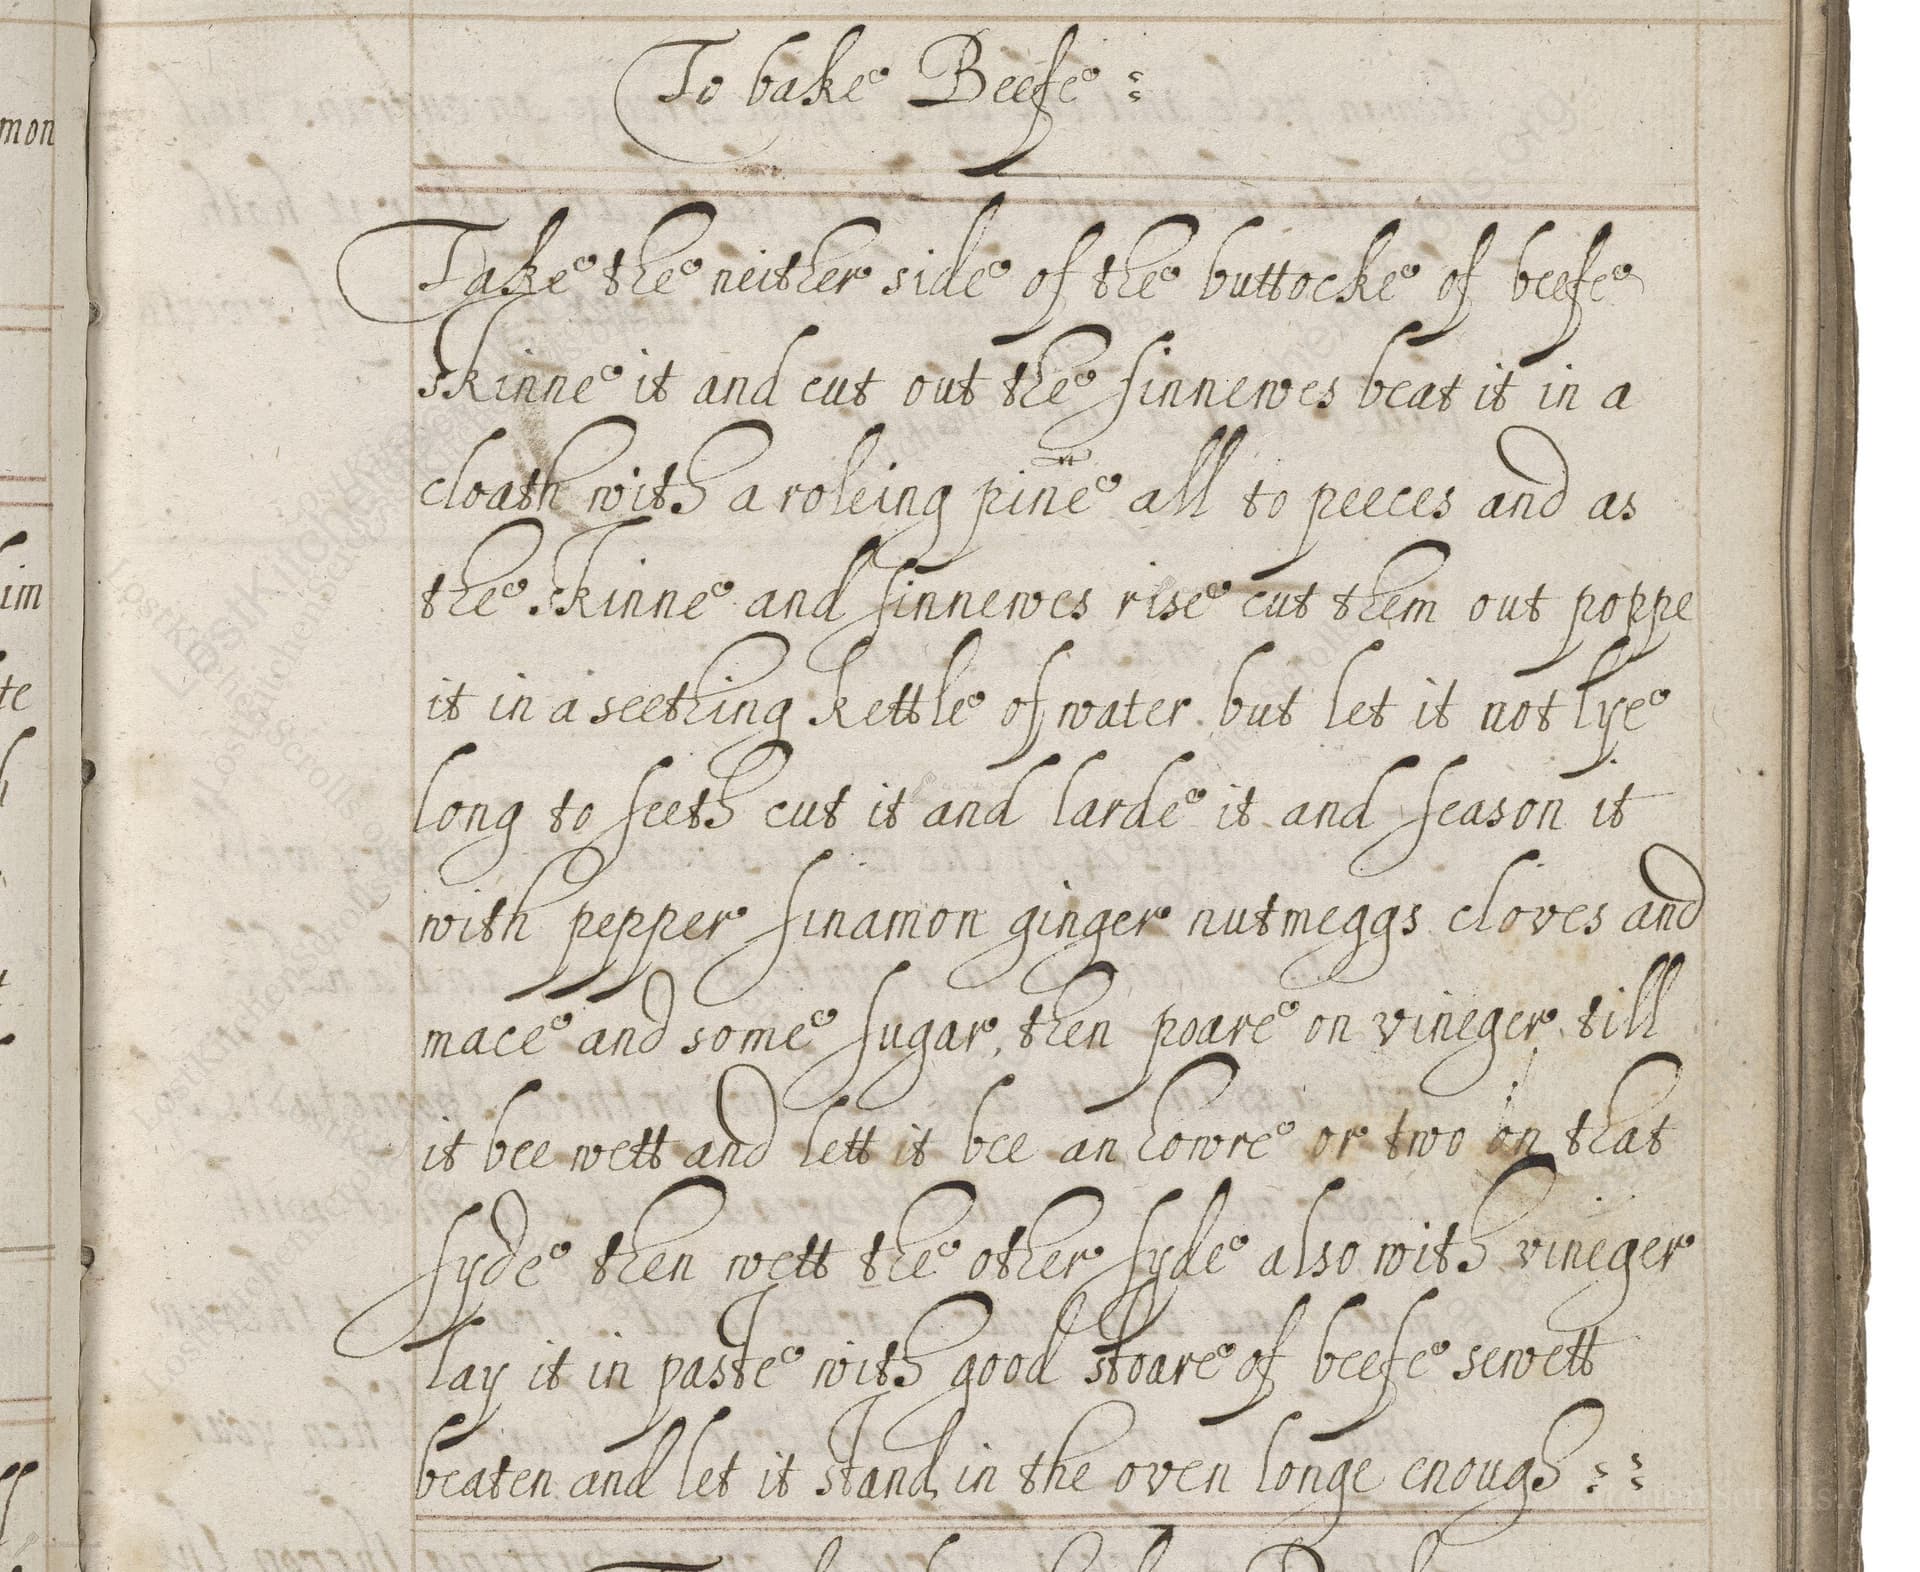 To bake Beefe :
Take the neither side of the buttocke of beefe
skinne it and cut out the sinnewes beat it in a
cloath with a roleing pine all to peeces and as
the skinne and sinnewes rise cut them out poppe
it in a seething kettle of water but let it not lye
long to seeth cut it and larde it and season it
with pepper sinamon ginger nutmeggs cloves and
mace and some sugar, then poare on vineger till
it bee wett and lett it bee an howre or two on that
syde then wett the other syde also with vineger
lay it in paste with good stoare of beefe sewett
beaten and let it stand in the oven longe enough : :